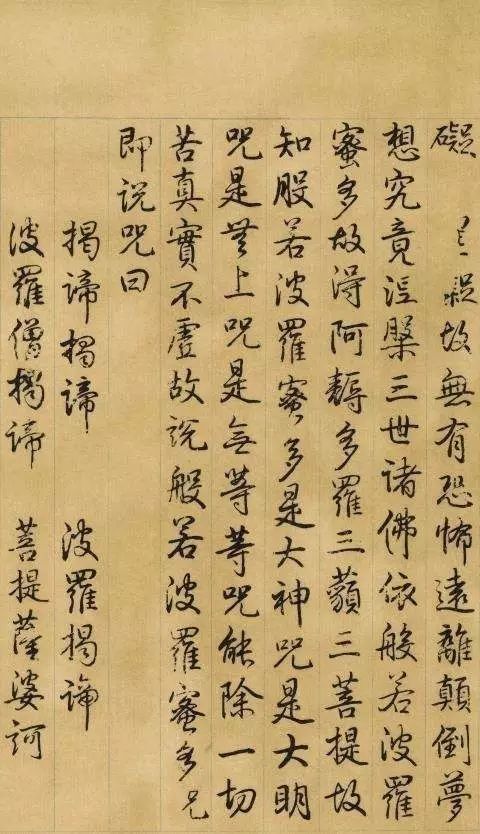 礙 罣礙故無有恐怖遠離顛倒夢
想究竟涅槃三世諸佛依般若波羅
蜜多故得阿耨多羅三藐三菩提故
知般若波羅蜜多是大神咒是大明
咒是無上咒是無等等咒能除一切
苦真實不虛故說般若波羅蜜多咒
即說咒曰
揭諦揭諦 波羅揭諦
波羅僧揭諦 菩提薩婆訶